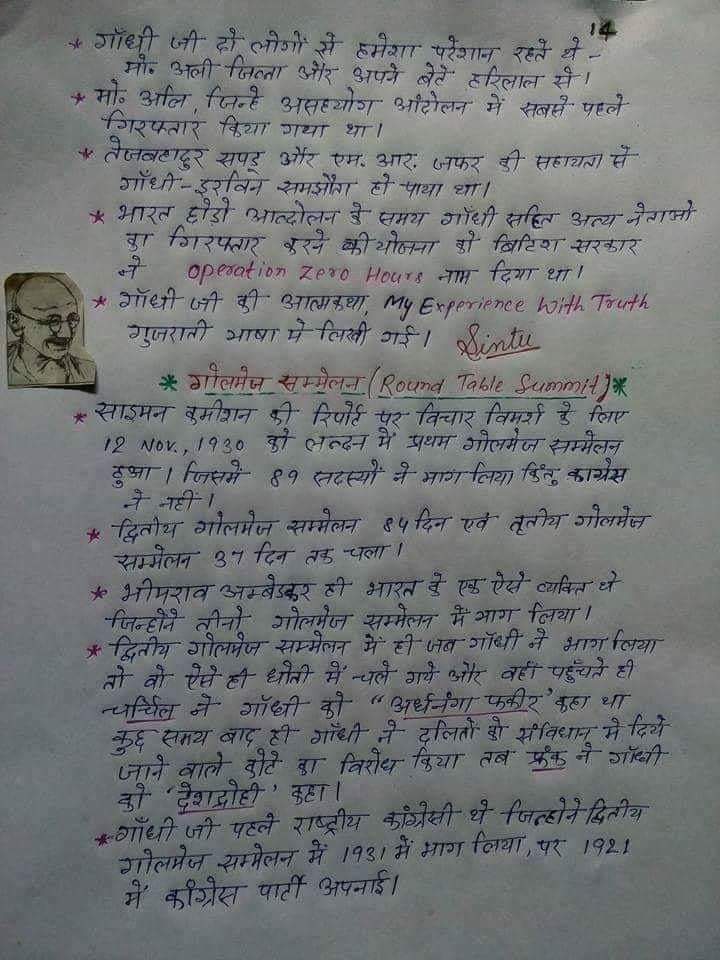 14
* गाँधी जी दो लोगों से हमेशा परेशान रहते थे -
मो. अली जिन्ना और अपने बेटे हरिलाल से।
* मो. अलि, जिन्हे असहयोग आंदोलन में सबसे पहले
गिरफ्तार किया गया था।
* तेजबहादुर सपड्र और एम. आर. जफर की सहायता से
गाँधी-इरविन समझौता हो पाया था।
* भारत छोडो आन्दोलन के समय गाँधी सहित अन्य नेताओ
का गिरफ्तार करने की योजना को ब्रिटिश सरकार
ने Operation Zero Hours नाम दिया था।
* गाँधी जी की आत्मकथा, My Experience With Truth
गुजराती भाषा में लिखी गई। Sintu
* गोलमेज सम्मेलन (Round Table Summit) *
* साइमन कमीशन की रिपोर्ट पर विचार विमर्श के लिए
12 Nov., 1930 को लन्दन में प्रथम गोलमेज सम्मेलन
हुआ। जिसमें 89 सदस्यों ने भाग लिया किंतु कांग्रेस
ने नहीं।
* द्वितीय गोलमेज सम्मेलन 84 दिन एवं तृतीय गोलमेज
सम्मेलन 37 दिन तक चला।
* भीमराव अम्बेडकर ही भारत के एक ऐसे व्यक्ति थे
जिन्होंने तीनो गोलमेज सम्मेलन में भाग लिया।
* द्वितीय गोलमेज सम्मेलन में ही जब गाँधी ने भाग लिया
तो वो ऐसे ही धोती में चले गये और वहाँ पहुँचते ही
चर्चिल ने गाँधी को "अर्धनंगा फकीर" कहा था
कुछ समय बाद ही गाँधी ने दलितों को संविधान में दिये
जाने वाले कोटे का विरोध किया तब फ्रैंक ने गाँधी
को 'देशद्रोही' कहा।
* गाँधी जी पहले राष्ट्रीय कांग्रेसी थे जिन्होने द्वितीय
गोलमेज सम्मेलन में 1931 में भाग लिया, पर 1921
में कांग्रेस पार्टी अपनाई।